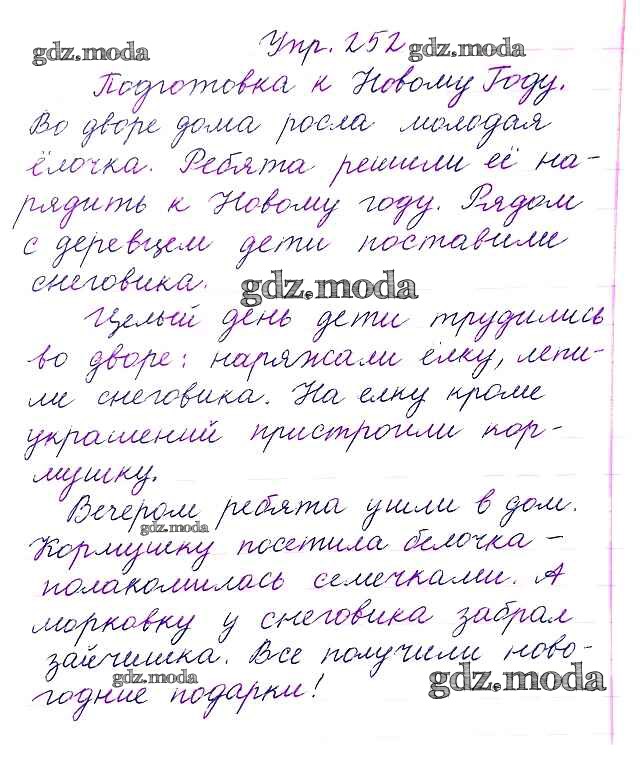 gdz.moda Упр. 252 gdz.moda
Подготовка к Новому Году.
Во дворе дома росла молодая
ёлочка. Ребята решили её на-
рядить к Новому году. Рядом
с деревцем дети поставили
снеговика. gdz.moda
Целый день дети трудились
во дворе: наряжали ёлку, лепи-
ли снеговика. На елку кроме
украшений пристроили кор-
мушку.
Вечером ребята ушли в дом.
gdz.moda
Кормушку посетила белочка –
полакомилась семечками. А
морковку у снеговика забрал
зайчишка. Все получили ново-
gdz.moda gdz.moda
годние подарки!